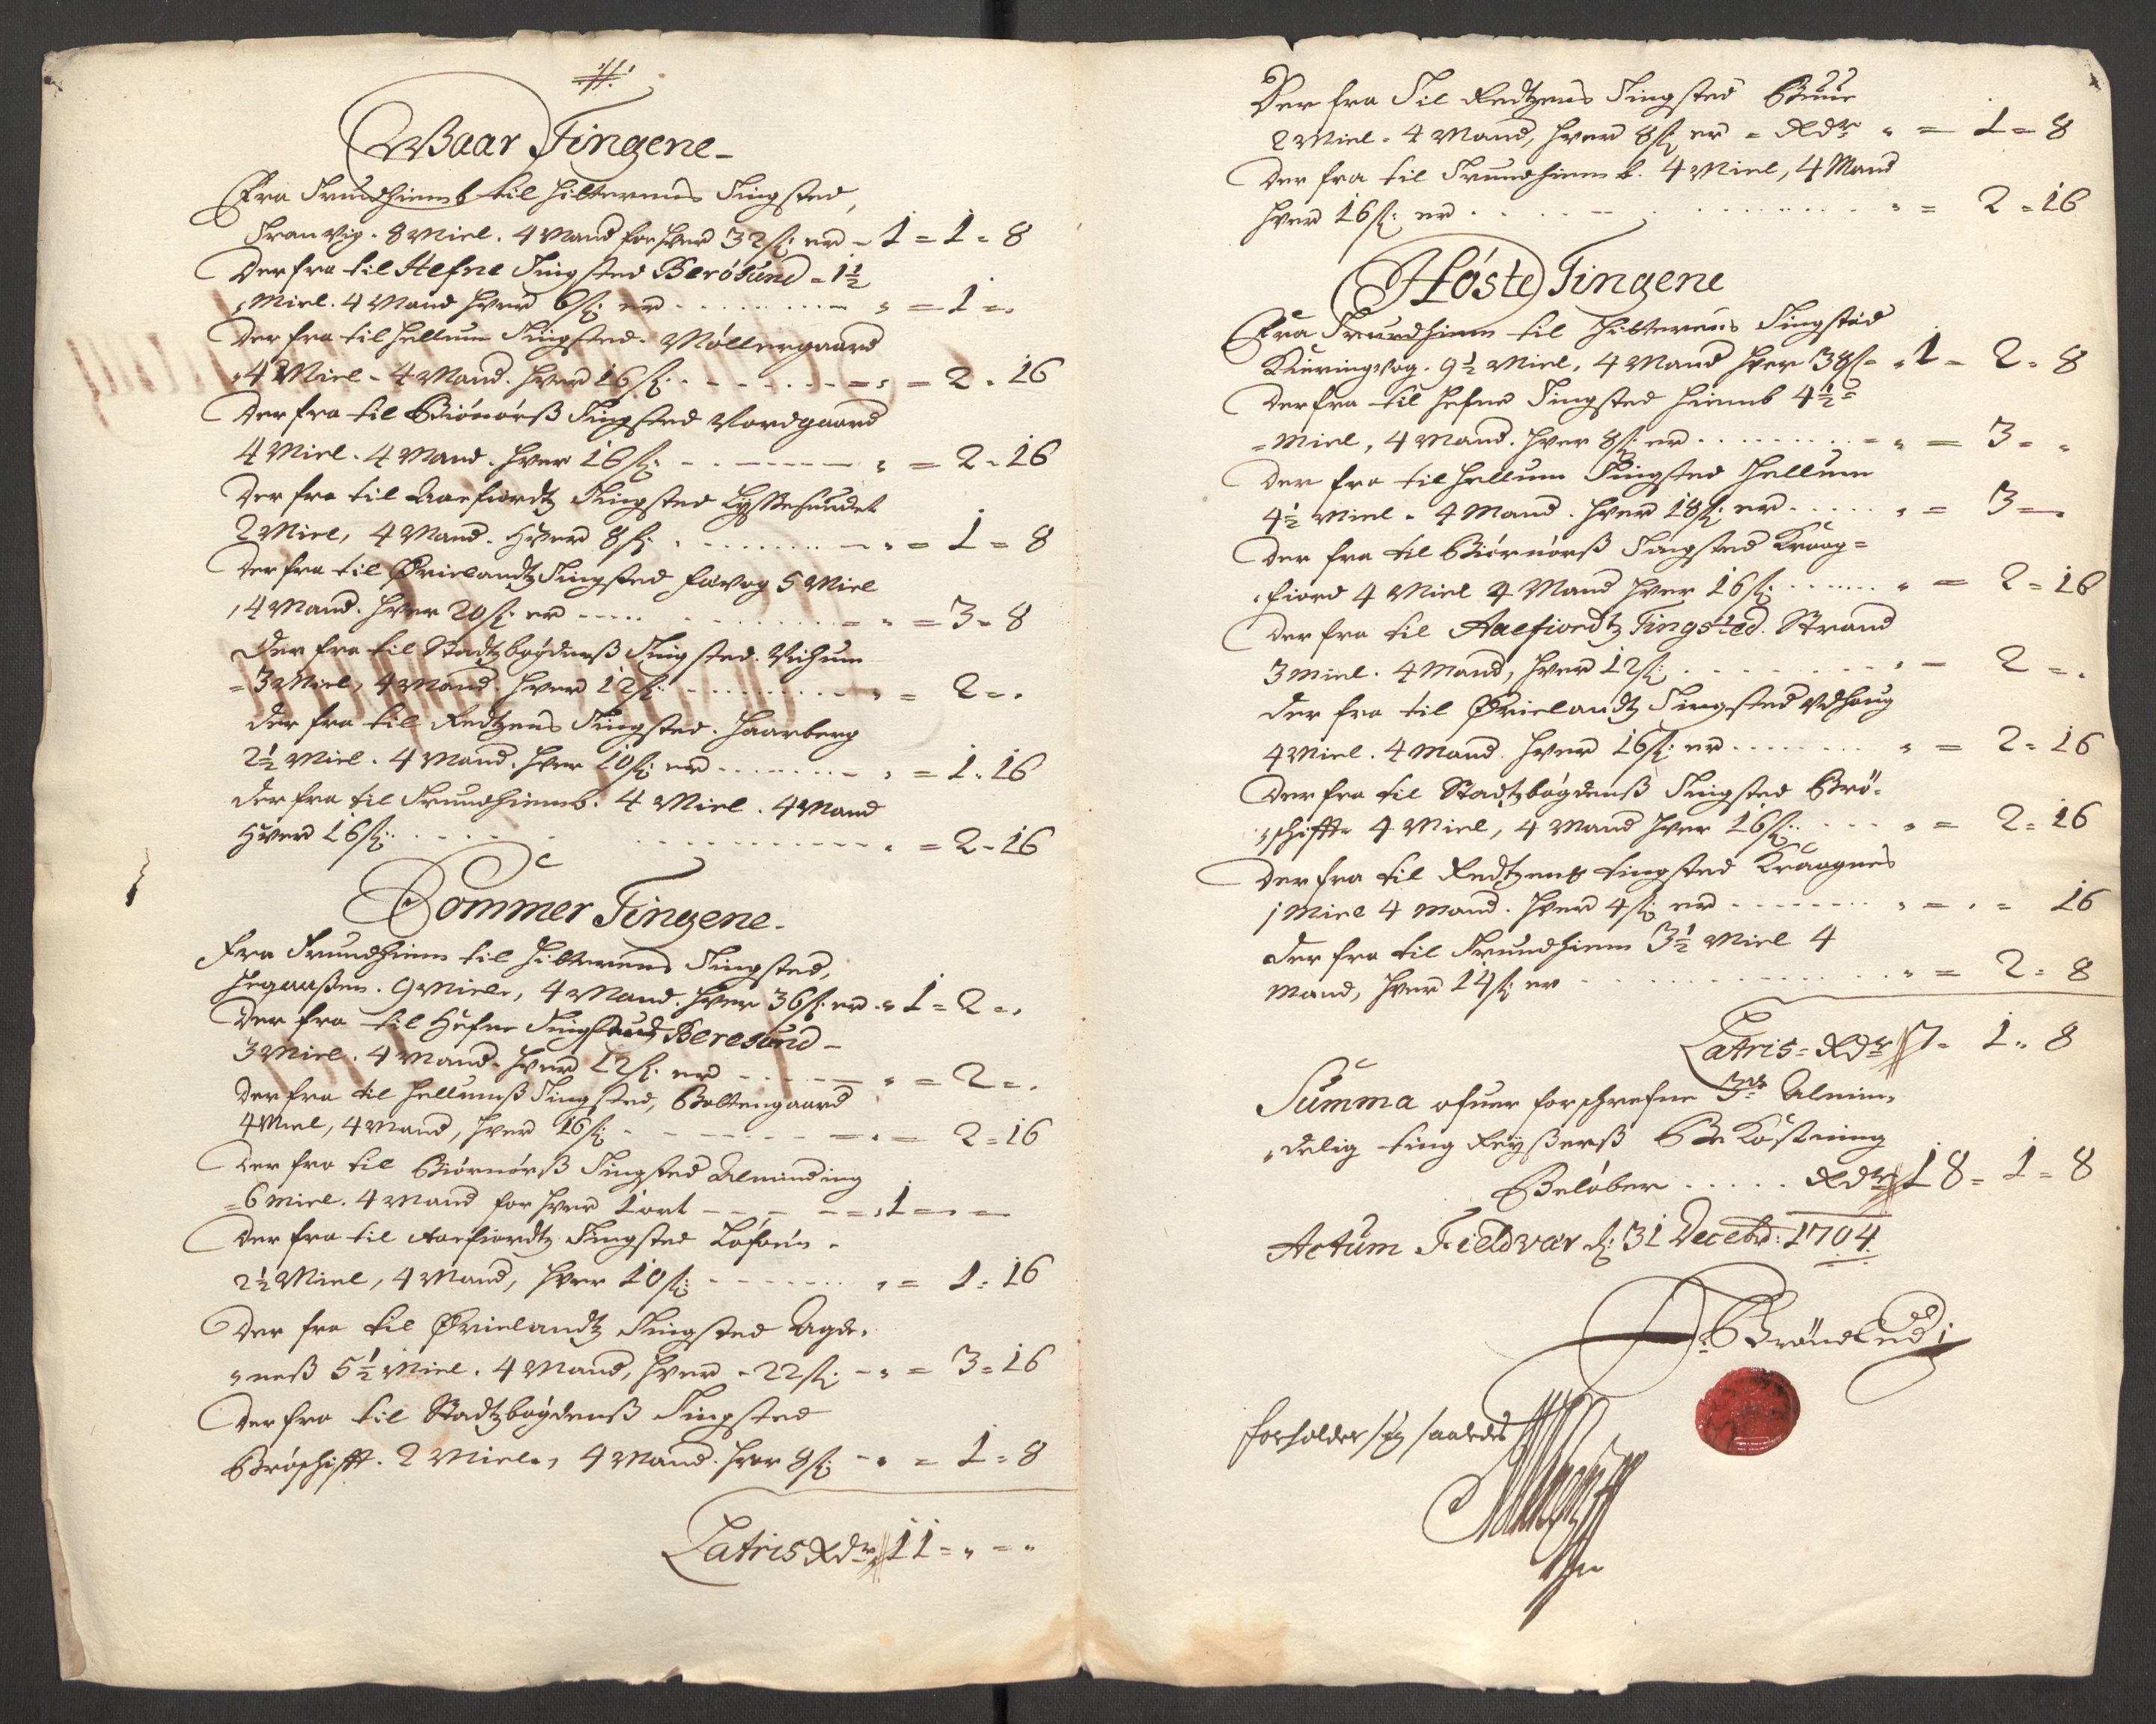 Waar Tingene
Fra Trundhiemb til Hitterens Tingsted,
Franvig. 8 Miel. 4 Mand for hver 32 s: er - 1 = 1 = 8
Der fra til Hefne Tingsted Berösund - 1½
Miel. 4 Mand hver 6 s: er - - - „ = 1 = „
Der fra til Hellum Tingsted. Möllergaard
4 Miel - 4 Mand. hver 16 s: - - - „ = 2 = 16
Der fra til Biönörß Tingsted Nordgaard
4 Miel. 4 Mand. hver 16 s: - - - „ = 2 = 16
Der fra til Aaefiordtz Tingsted Lystesundet
2 Miel, 4 Mand. Hver 8 s: - - - „ = 1 = 8
Der fra til Ørielandtz Tingsted Favog 5 Miel
4 Mand. hver 20 s: er - - - „ = 3 = 8
Der fra til Stadtzbøydenß Tingsted. Vichum
3 Miel, 4 Mand. hver 12 s: - - - „ = 2 = „
Der fra til Redtzens Tingsted. Haarberg
2½ Miel. 4 Mand. hver 10 s: er - - - „ = 1 = 16
Der fra til Trundhiemb. 4 Miel. 4 Mand
Hver 16 s: - - - „ = 2 = 16
Sommer Tingene
Fra Trundhiem til Hitterens Tingsted,
Hegaaßen. 9 Miele, 4 Mand. hver 36 s: er „ 1 = 2 = „
Der fra til Hefne Tingsted Beresund -
3 Miel. 4 Mand. hver 12 s: er - - - „ = 2 = „
Der fra til Hellumß Tingsted, Boltengaard
4 Miel, 4 Mand, hver 16 s: - - - „ = 2 = 16
Der fra til Biörnörß Tingsted Alminding
6 Miel. 4 Mand for hver 1 ort - - - „ 1 = „ =
Der fra til Aaefiordtz Tingsted
2½ Miel, 4 Mand, hver 10 s: - - - „ = 1 = 16
Der fra til Ørielandtz Tingsted Agde„
„neß 5½ Miel. 4 Mand, hver - 22 s: - „ = 3 = 16
Der fra til Stadtzbøydenß Tingsted
Bröschifft. 2 Miele, 4 Mand. hver 8 s: - „ = 1 = 8
Latris Rdr 11 = „ = „
Der fra Til Redtzens Tingsted
2 Miel. 4 Mand, hver 8 s: er = Rdr „ = 1 = 8
Der fra til Trundhiemb. 4 Miel, 4 Mand
hver 16 s: er - - - „ = 2 = 16
Höste Tingene
Fra Trundhiem til Hitterens Tingsted
Kieringvog. 9½ Miel, 4 Mand hver 38 s = „ 1 = 2 = 8
Der fra til Hefne Tingsted Hiemb 4½
Miel, 4 Mand. hver 8 s: er - - - „ = 3 = „
Der fra til Hellum Tingsted Hellum
4½ Miel. 4 Mand. hver 18 s: er - - - „ = 3 = „
Der fra til Biörnörß Tingsted Kraag=
fiord 4 Miel 4 Mand hver 16 s: - - - „ = 2 = 16
Der fra til Aaefiordtz Tingsted. Strand
3 Miel. 4 Mand, hver 12 s: - - - „ = 2 = „
Der fra til Ørielandtz Tingsted Udhaug
4 Miel. 4 Mand. hver 16 s: er - - - „ = 2 = 16
Der fra til Stadtzbøgdenß Tingsted Brö„
„schifft 4 Miel, 4 Mand hver 16 s: - - - „ = 2 = 16
Der fra til Redtzens tingsted Kraagnes
1 Miel 4 Mand. hver 4 s: er - - - „ = „ = 16
Der fra til Trundhiem 3½ Miel 4
Mand, hver 14 s: er - - - „ = 2 = 8
Latris = Rdr 7 = 1 = 8
Summa ofver forschrefne 3de Almin„
„delig ting Reyßerß Bekostning
Beløber - - - Rdr 18 = 1 = 8
Actum Fieldvær d: 31 Decebr: 1704
forholder sig saaledes